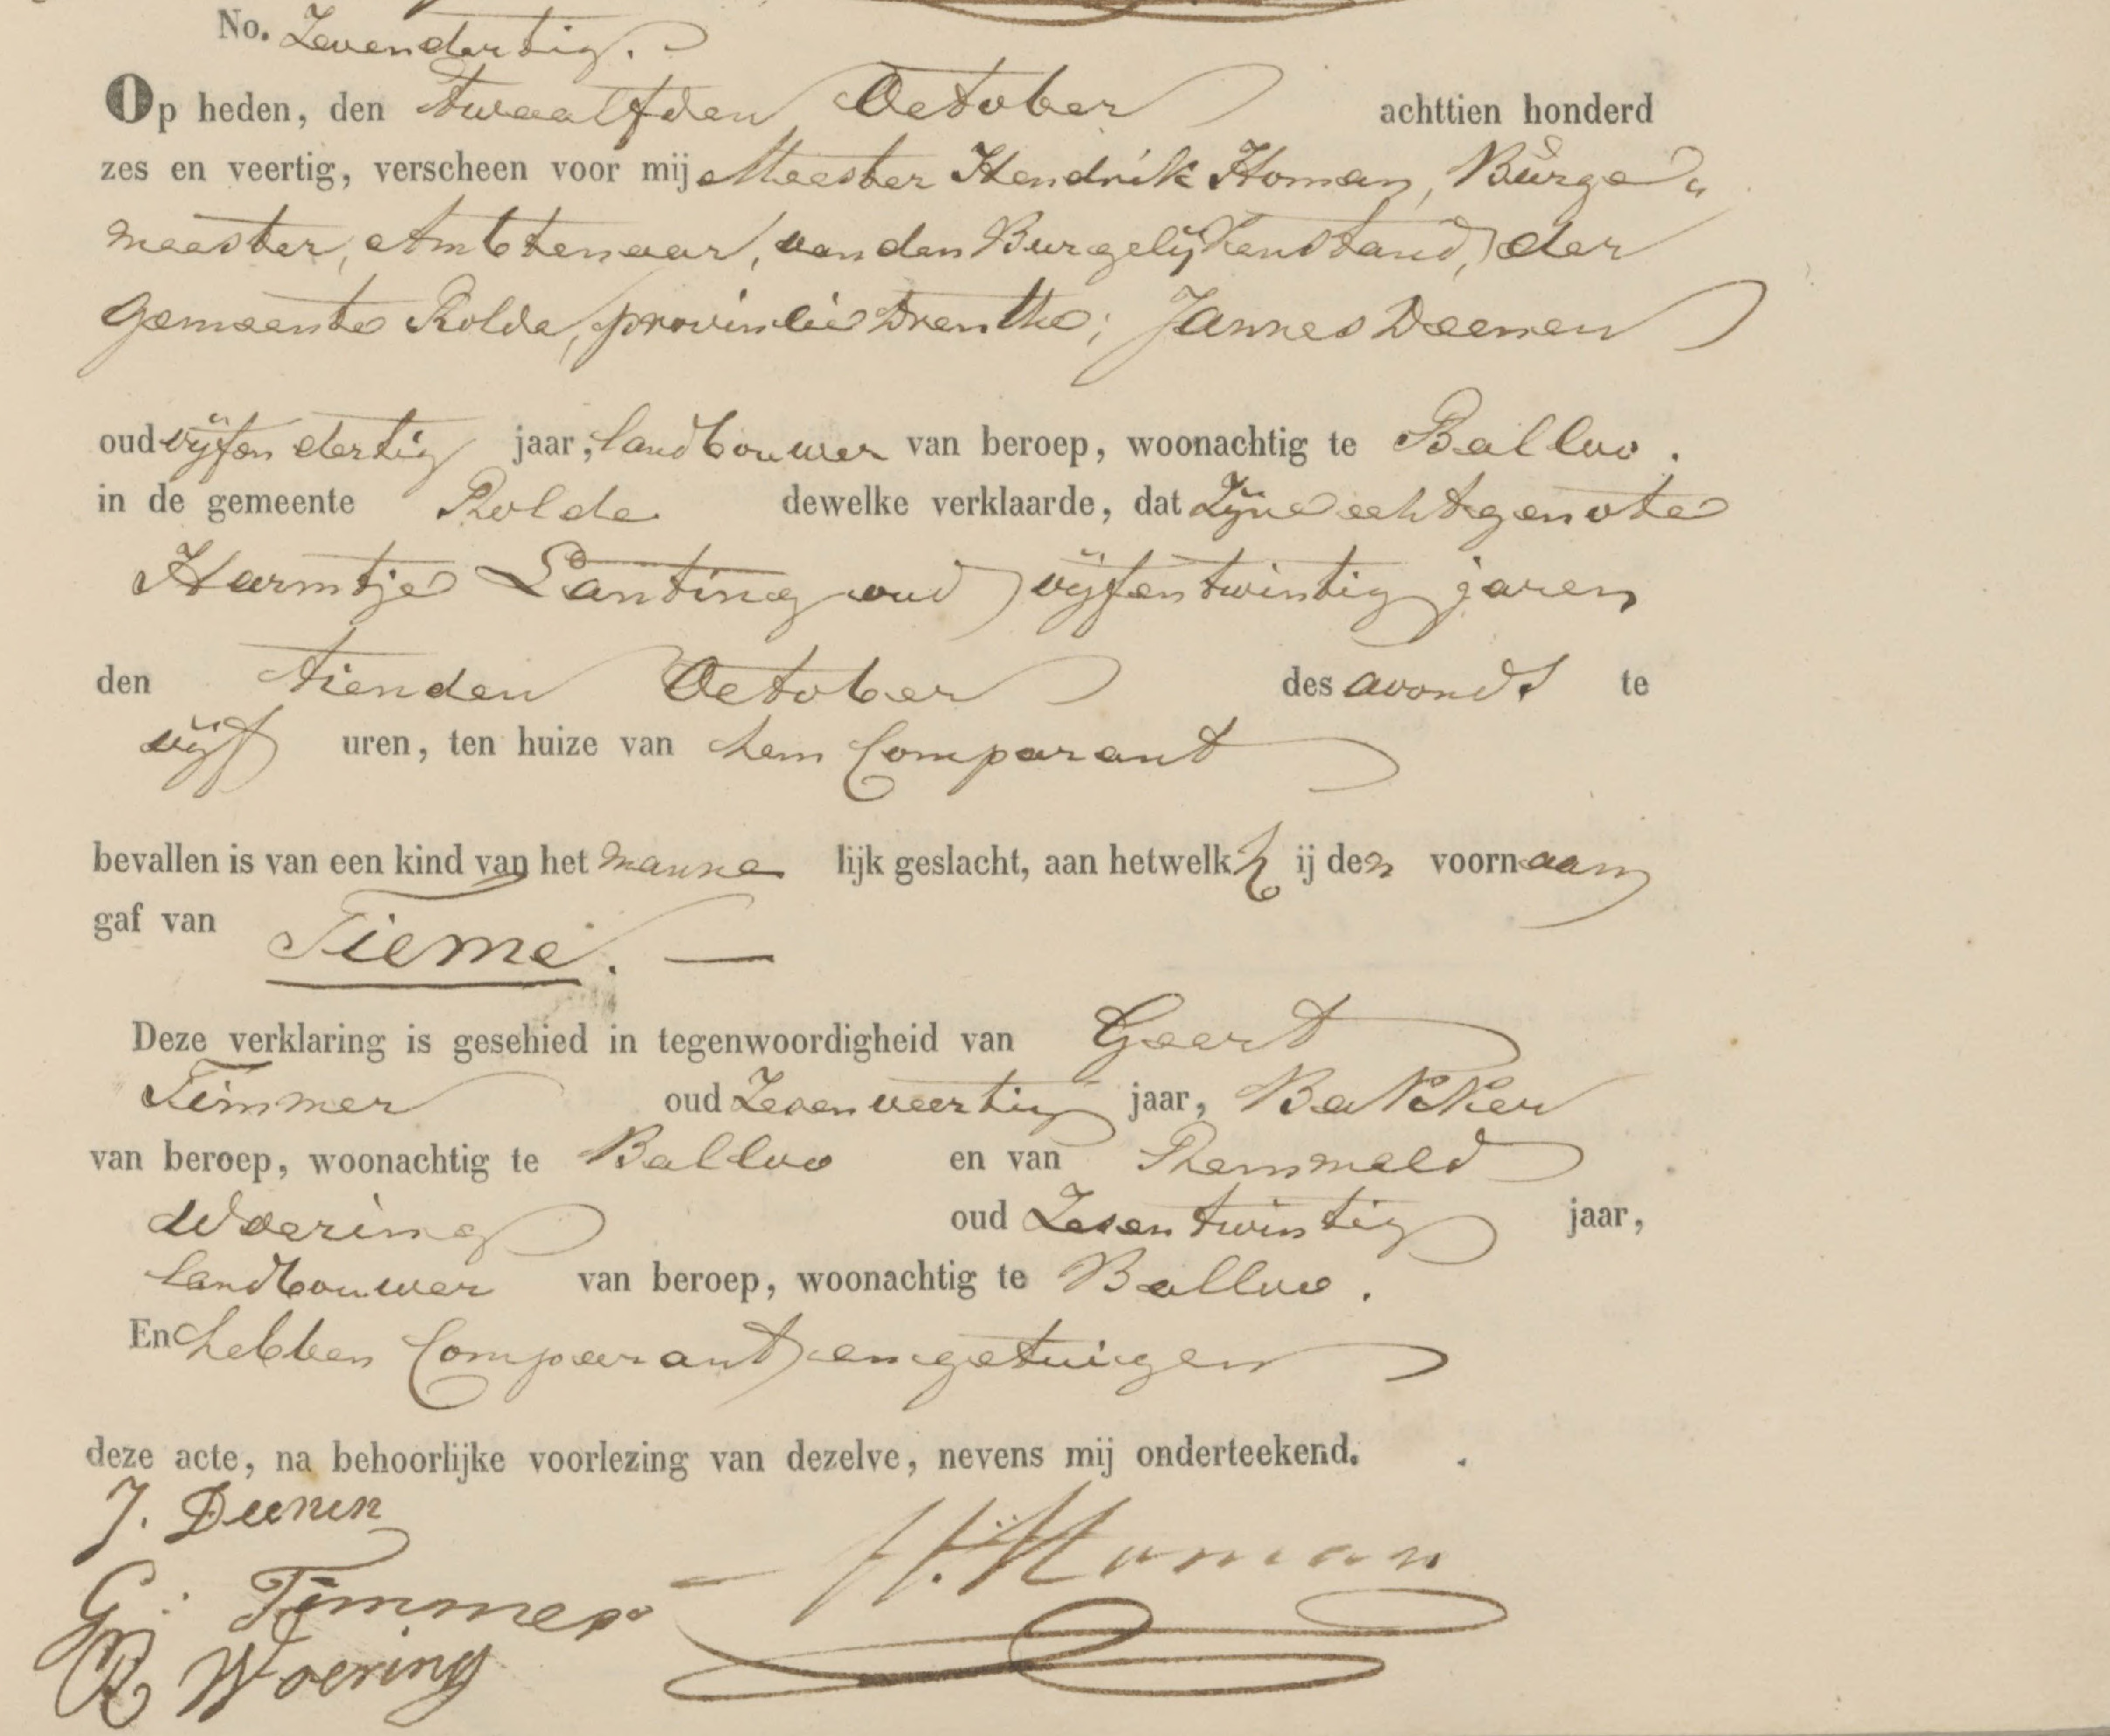 No. Zevendertig.
Op heden, den twaalfden October achttien honderd
zes en veertig, verscheen voor mij Meester Hendrik Homan, Burge„
meester, Ambtenaar, van den Burgelijkenstand, der
gemeente Rolde, provincie Drenthe; Jannes Deenen
oud vijfendertig jaar, landbouwer van beroep, woonachtig te Balloo.
in de gemeente Rolde dewelke verklaarde, dat Zijne echtgenote
Harmtje Lanting oud vijfentwintig jaren
den tienden October des avonds te
vijf uren, ten huize van hem Comparant
bevallen is van een kind van het manne lijk geslacht, aan hetwelk h ij den voornaam
gaf van Tieme. —
Deze verklaring is geschied in tegenwoordigheid van Geert
Timmer oud Zesenveertig jaar, Bakker
van beroep, woonachtig te Balloo en van Remmelt
Woering oud Zesentwintig jaar,
landbouwer van beroep, woonachtig te Balloo.
En hebben Comparant en getuigen
deze acte, na behoorlijke voorlezing van dezelve, nevens mij onderteekend.
J. Deenen
H. Homan
G. Timmer
R Woering